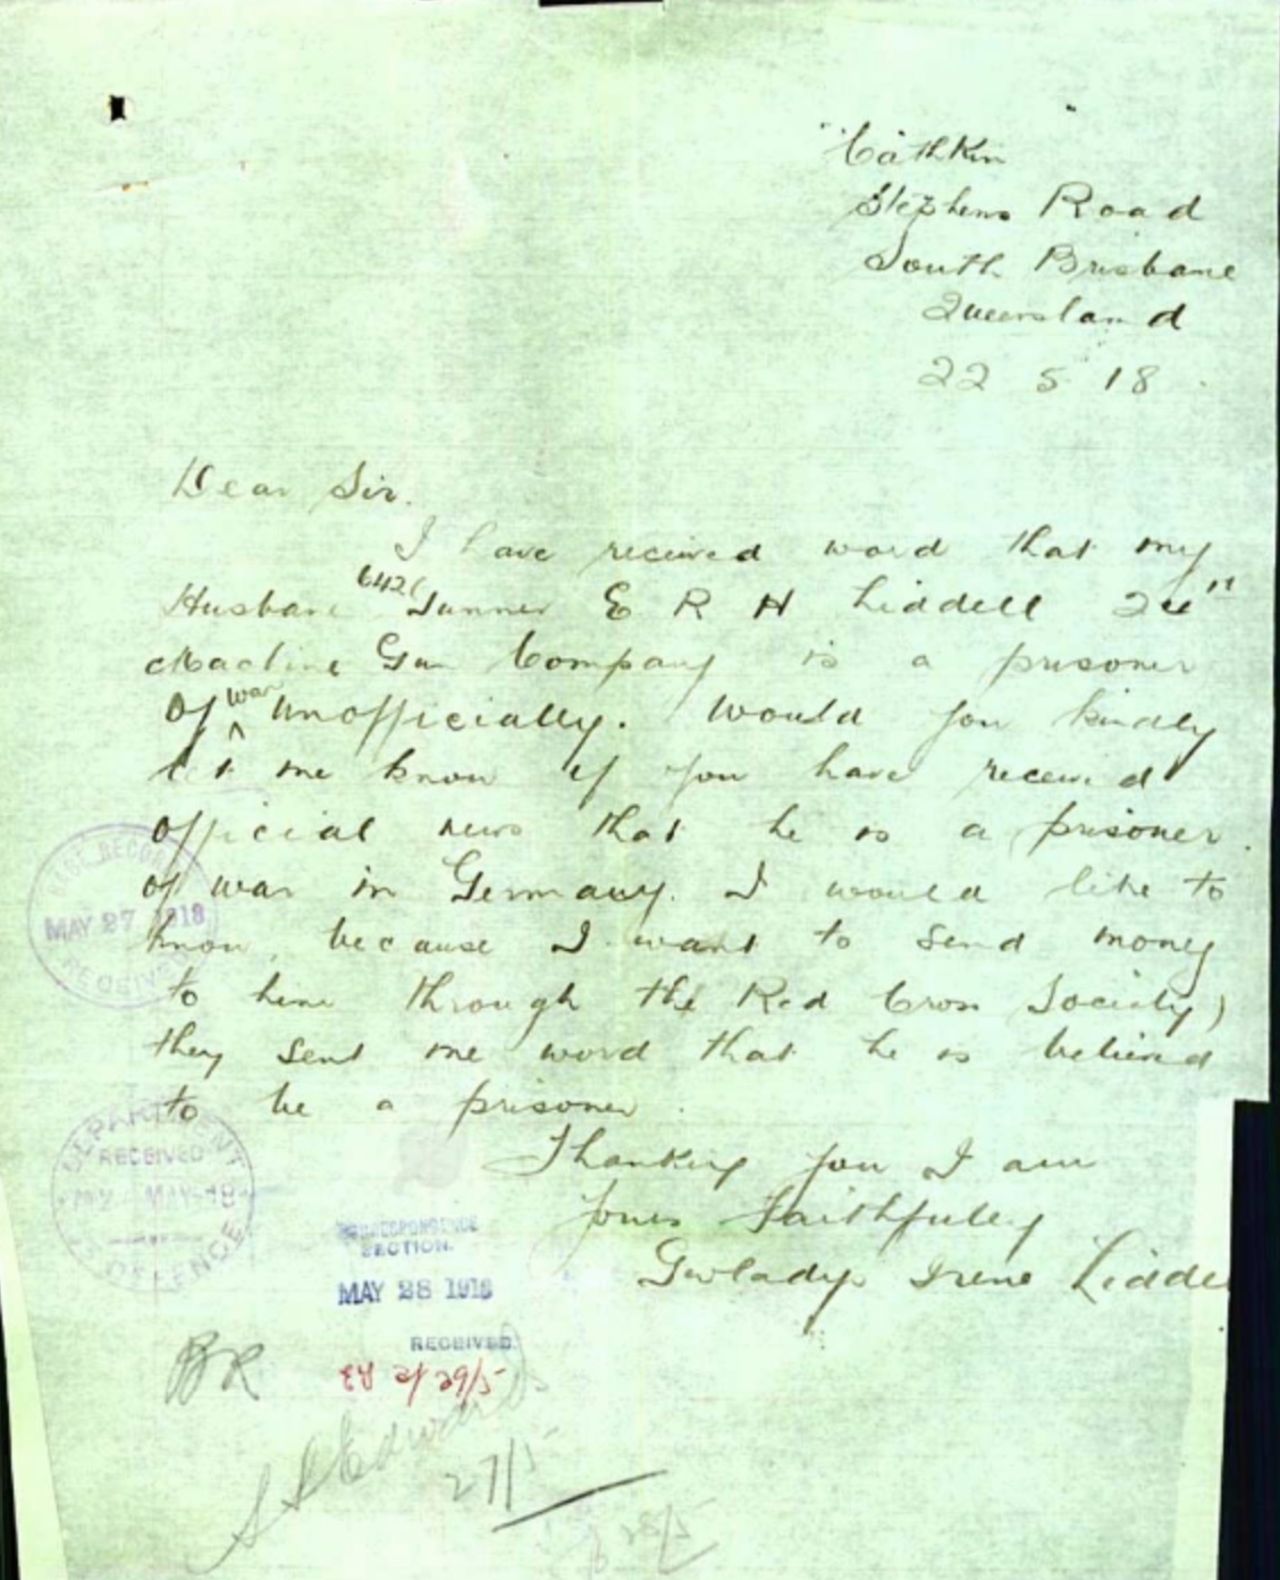 "Cathkin
Stephens Road
South Brisbane
Queensland
22 5 18
Dear Sir.
I have received word that my
6426
Husband Gunner E R H Liddell 24"
Machine Gun Company is a prisoner
of war unofficially. Would you kindly
let me know if you have received
official news that he is a prisoner
of war in Germany. I would like to
know, because I want to send money
to him through the Red Cross Society)
they sent me word that he is believed
to be a prisoner.
Thanking you I am
Yours Faithfully
Gwladys Irene Lidde
BASE RECORDS
MAY 27 1918
RECEIVED
DEPARTMENT
RECEIVED
MAY 18
OF DEFENCE
CORRESPONDENCE
SECTION.
MAY 28 1918
RECEIVED
BR
29/5
Edwards
27/5
28/5